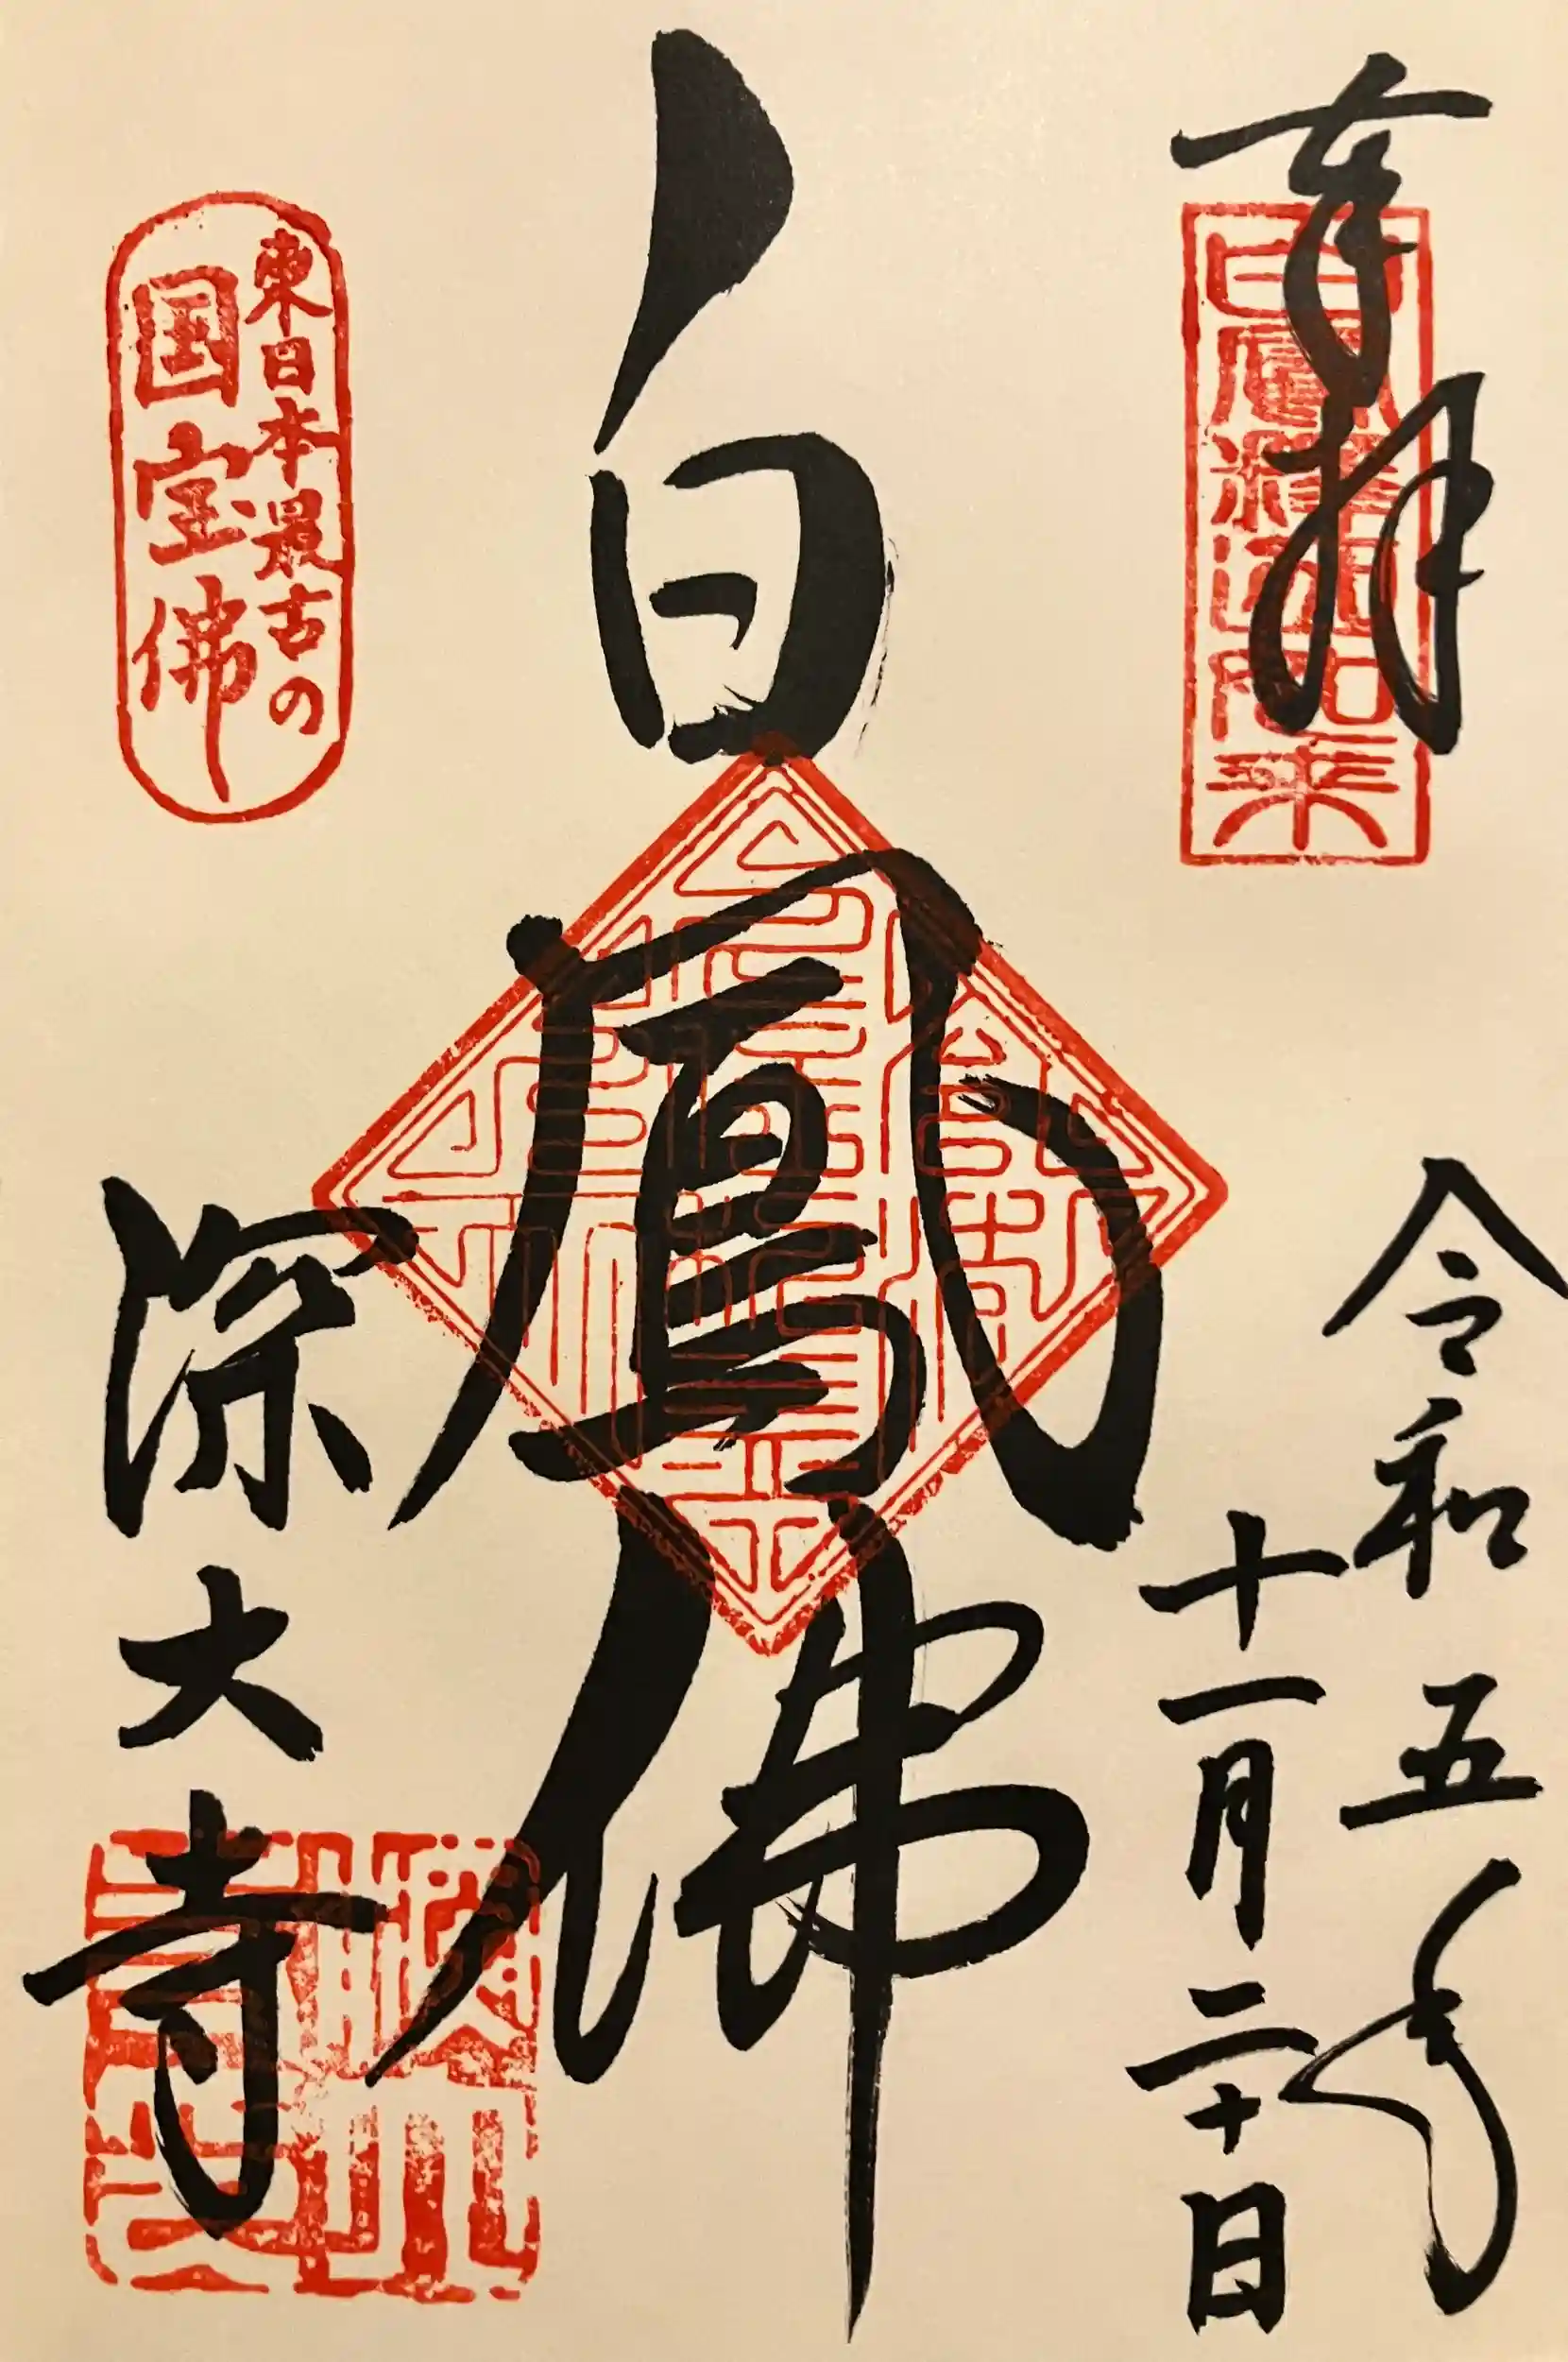 奉拝
白鳳釈迦如来
令和五年
十一月二十日
白鳳佛
東日本最古の
国宝佛
深大寺